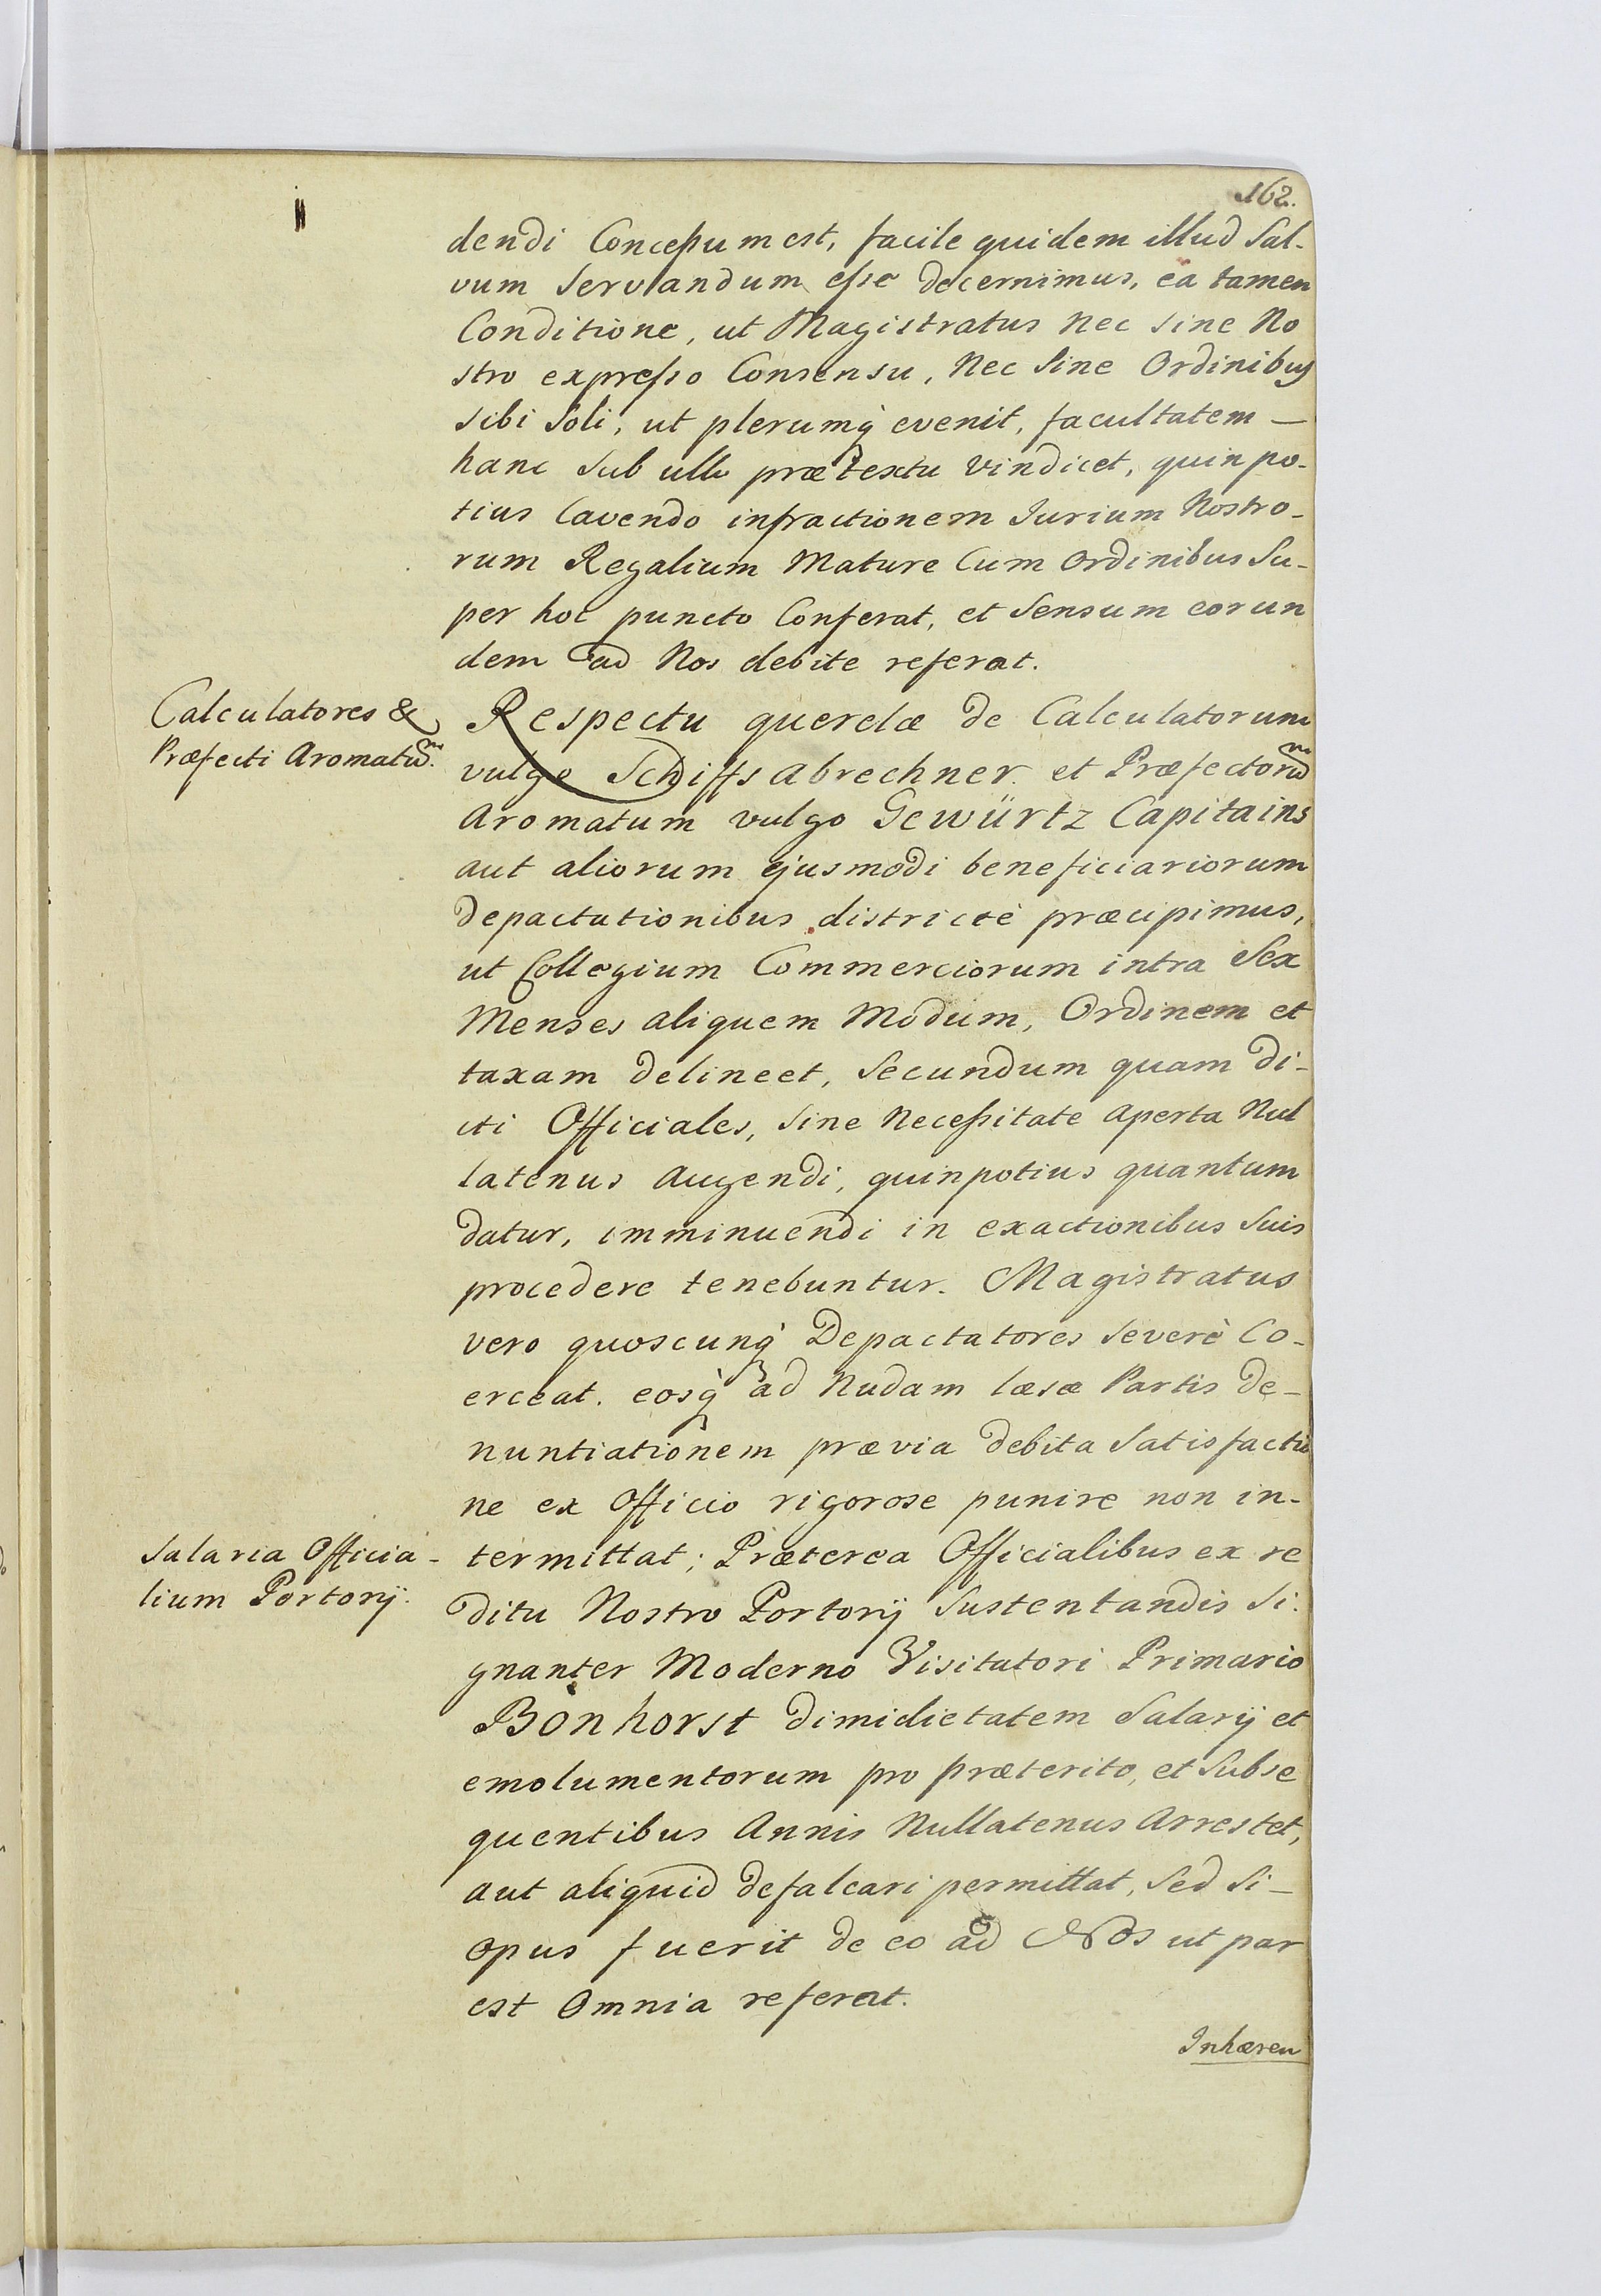 162.
dendi Concessum est, facile quidem illud Sal-
vum Servandum esse decernimus, ea tamen
Conditione, ut Magistratus nec sine No
stro expresso Consensu, Nec Sine Ordinibus
sibi Soli, ut plerumq́ evenit, facultatem —
hanc Sub ullo prætextu vindicet, quin po-
tius Cavendo infractionem Jurium Nostro-
rum Regalium Mature Cum Ordinibus Su-
per hoc puncto Conferat, et Sensum eorun
dem ad Nos debite referat.
Calculatores &
Præfecti Aromatũ.
Respectu querelæ de Calculatorum
vulgo Schiffs abrechner et Præfectorũ
Aromatum vulgo Gewürtz Capitains
aut aliorum ejusmodi beneficiariorum
depactationibus districtè præcipimus,
ut Collegium Commerciorum intra Sex
Menses aliquem Modum, Ordinem et
taxam delineet, Secundum quam di-
cti Officiales, sine Necessitate aperta Nul
latenus augendi, quinpotius quantum
datur, imminuendi in exactionibus Suis
procedere tenebuntur. Magistratus
vero quoscunq́ Depactatores Severè Co-
erceat. eosq́ ad Nudam læsæ Partis de-
nuntiationem prævia debita Satisfactio
ne ex Officio rigorose punire non in-
Salaria Officia-
lium Portorij.
termittat; Præterea Officialibus ex re
ditu Nostro Portorij Sustentandis Si-
gnanter Moderno Visitatori Primario
Bonhorst dimidietatem Salarij et
emolumentorum pro præterito, et Subse
quentibus Annis Nullatenus Arrestet,
aut aliquid defalcari permittat, Sed Si —
opus fuerit de eo ad Nos ut par
est Omnia referat.
Inhæren